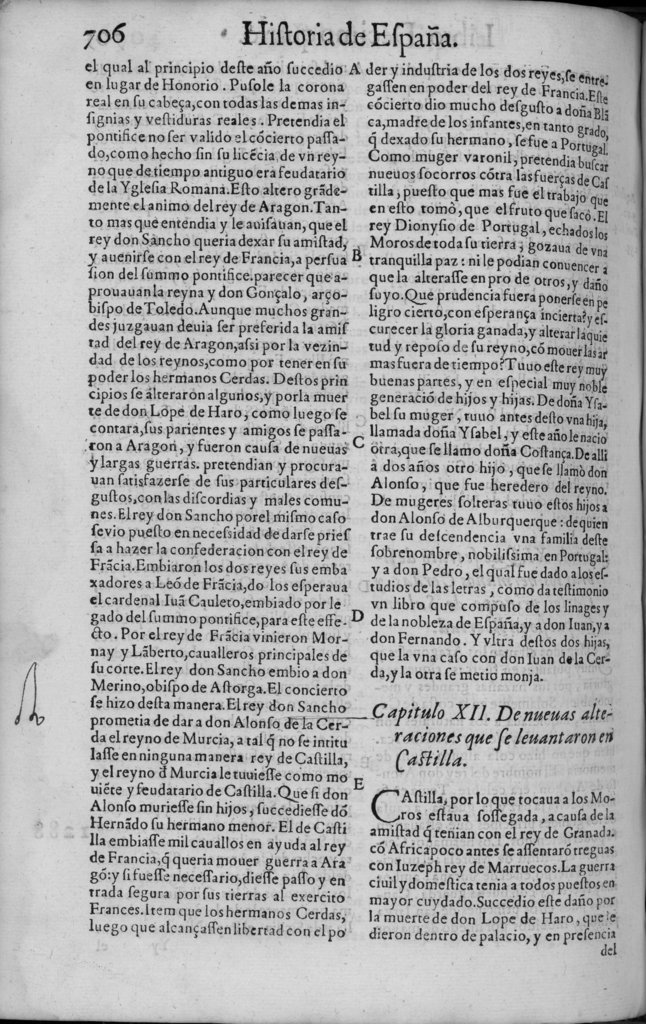 706 Historia de España.
el qual al principio deste año succedio
en lugar de Honorio. Pusole la corona
real en su cabeça, con todas las demas in-
signias y vestiduras reales. Pretendia el
pontifice no ser valido el cócierto passa-
do, como hecho sin su licẽcia, de vn rey-
no que de tiempo antiguo era feudatario
de la Yglesia Romana. Esto altero grãde-
mente el animo del rey de Aragon. Tan-
to mas que entendia y le auisauan, que el
rey don Sancho queria dexar su amistad,
y auenirse con el rey de Francia, a persua
sion del summo pontifice. parecer que a-
prouauan la reyna y don Gonçalo, arço-
bispo de Toledo. Aunque muchos gran-
des juzgauan deuia ser preferida la amis
tad del rey de Aragon, assi por la vezin-
dad de los reynos, como por tener en su
poder los hermanos Cerdas. Destos prin
cipios se alteraron algunos, y por la muer
te de don Lope de Haro, como luego se
contara, sus parientes y amigos se passa-
ron a Aragon, y fueron causa de nueuas
y largas guerras. pretendian y procura-
uan satisfazerse de sus particulares des-
gustos, con las discordias y males comu-
nes. El rey don Sancho por el mismo caso
se vio puesto en necessidad de darse pries
sa a hazer la confederacion con el rey de
Frãcia. Embiaron los dos reyes sus emba
xadores a Leó de Frãcia, do los esperaua
el cardenal Iuã Cauleto, embiado por le
gado del summo pontifice, para este effe-
cto. Por el rey de Frãcia vinieron Mor-
nay y Lãberto, caualleros principales de
su corte. El rey don Sancho embio a don
Merino, obispo de Astorga. El concierto
se hizo desta manera. El rey don Sancho
prometia de dar a don Alonso de la Cer-
da el reyno de Murcia, a tal q̃ no se intitu
lasse en ninguna manera rey de Castilla,
y el reyno d̃ Murcia le tuuiesse como mo
uiẽte y feudatario de Castilla. Que si don
Alonso muriesse sin hijos, succediesse dó
Hernãdo su hermano menor. El de Casti
lla embiasse mil cauallos en ayuda al rey
de Francia, q̃ queria mouer guerra a Ara
gó: y si fuesse necessario, diesse passo y en
trada segura por sus tierras al exercito
Frances. Item que los hermanos Cerdas,
luego que alcançassen libertad con el po
A
B
C
D
E
der y industria de los dos reyes, se entre-
gassen en poder del rey de Francia. Este
cócierto dio mucho desgusto a doña Blã
ca, madre de los infantes, en tanto grado,
q̃ dexado su hermano, se fue a Portugal.
Como muger varonil, pretendia buscar
nueuos socorros cótra las fuerças de Cas
tilla, puesto que mas fue el trabajo que
en esto tomò, que el fruto que sacò. El
rey Dionysio de Portugal, echados los
Moros de toda su tierra, gozaua de vna
tranquilla paz: ni le podian conuencer a
que la alterasse en pro de otros, y daño
suyo. Que prudencia fuera ponerse en pe
ligro cierto, con esperança incierta? y es-
curecer la gloria ganada, y alterar la quie
tud y reposo de su reyno, có mouer las ar
mas fuera de tiempo? Tuuo este rey muy
buenas partes, y en especial muy noble
generació de hijos y hijas. De doña Ysa-
bel su muger, tuuo antes desto vna hija,
llamada doña Ysabel, y este año le nacio
otra, que se llamo doña Costança. De alli
a dos años otro hijo, que se llamò don
Alonso, que fue heredero del reyno.
De mugeres solteras tuuo estos hijos a
don Alonso de Alburquerque: de quien
trae su descendencia vna familia deste
sobrenombre, nobilissima en Portugal:
y a don Pedro, el qual fue dado a los es-
tudios de las letras, como da testimonio
vn libro que compuso de los linages y
de la nobleza de España, y a don Iuan, y a
don Fernando. Y vltra destos dos hijas,
que la vna caso con don Iuan de la Cer-
da, y la otra se metio monja.
Capitulo XII. De nueuas alte-
raciones que se leuantaron en
Castilla.
CAstilla, por lo que tocaua a los Mo-
ros estaua sossegada, a causa de la
amistad q̃ tenian con el rey de Granada.
có Africa poco antes se assentaró treguas
con Iuzeph rey de Marruecos. La guerra
ciuil y domestica tenia a todos puestos en
mayor cuydado. Succedio este daño por
la muerte de don Lope de Haro, que le
dieron dentro de palacio, y en presencia
del